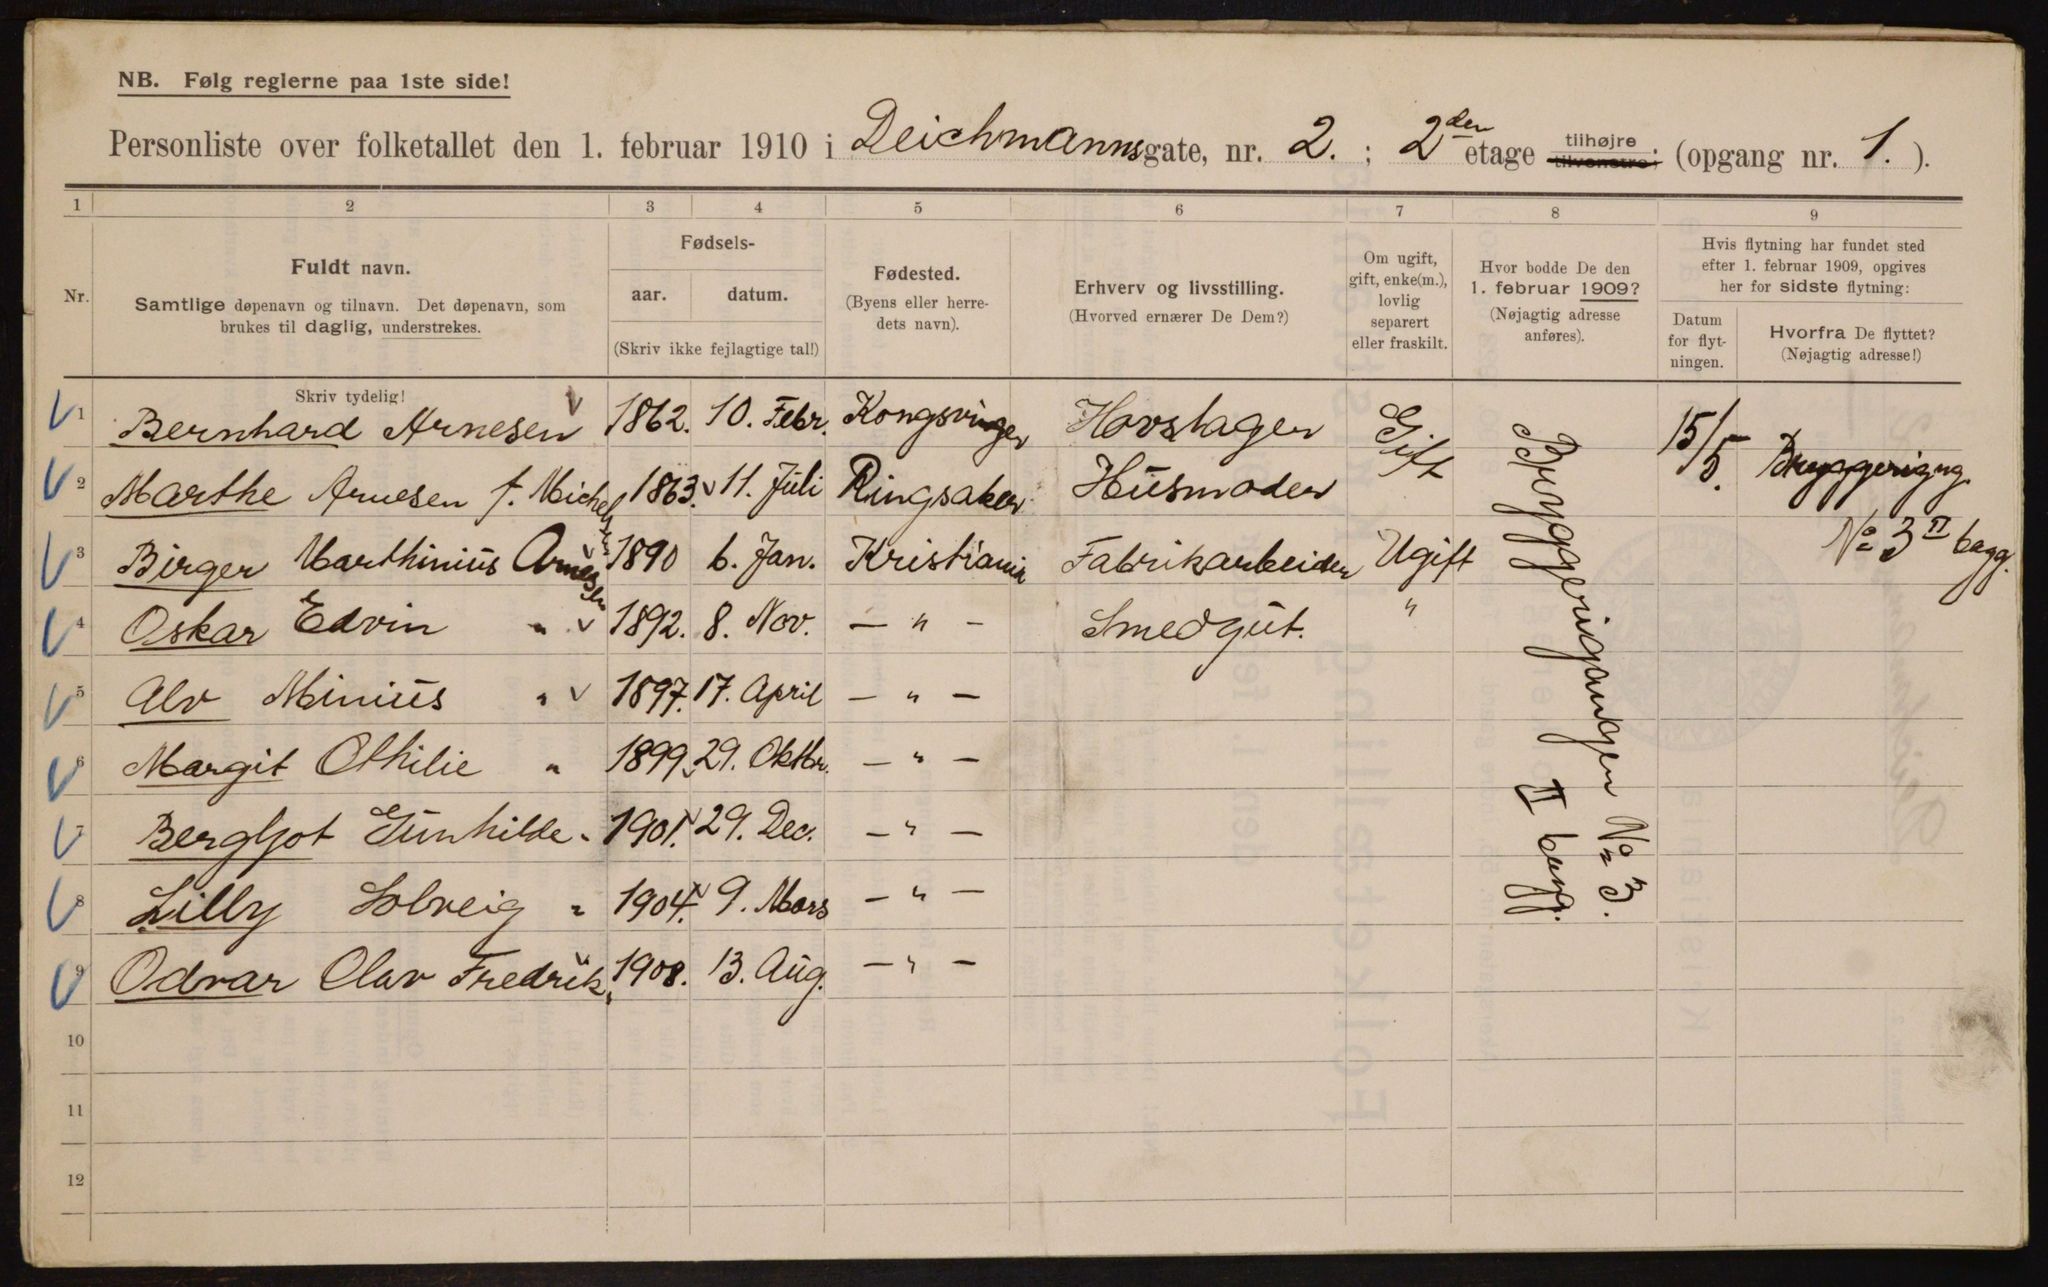 NB. Følg reglerne paa 1ste side!
Personliste over folketallet den 1. februar 1910 i Deichmannsgate, nr. 2. ; 2den etage tilhøjre tilvenstre; (opgang nr. 1. ).
1 2 3 4 5 6 7 8 9
Nr.
Fuldt navn.
Samtlige døpenavn og tilnavn. Det døpenavn, som
brukes til daglig, understrekes.
Fødsels-
aar. datum.
(Skriv ikke fejlagtige tal!)
Fødested.
(Byens eller herre-
dets navn).
Erhverv og livsstilling.
(Hvorved ernærer De Dem?)
Om ugift,
gift, enke(m.),
lovlig
separert
eller fraskilt.
Hvor bodde De den
1. februar 1909?
(Nøjagtig adresse
anføres).
Hvis flytning har fundet sted
efter 1. februar 1909, opgives
her for sidste flytning:
Datum
for flyt-
ningen.
Hvorfra De flyttet?
(Nøjagtig adresse!)
Skriv tydelig!
1 Bernhard Arnesen 1862. 10. Febr. Kongsvinger Hovslager Gift 15/5. Bryggerigng.
2 Marthe Arnesen f. Michelsen 1863. 11. Juli Ringsaker Husmoder
No 3 II bagg.
3 Birger Marthinius Arnesen 1890 6. Jan. Kristiania Fabrikarbeider Ugift
4 Oskar Edvin " 1892. 8. Nov. — " — Smedgut. "
5 Alv Minius " 1897. 17. April — " —
6 Margit Othilie " 1899. 29. Oktbr. — " —
7 Bergljot Gunhilde " 1901. 29. Dec. — " —
8 Lilly Solveig " 1904. 9. Mars — " —
9 Odvar Olav Fredrik " 1908. 13. Aug. — " —
10
11
12
Bryggerigangen No 3.
II bagg.